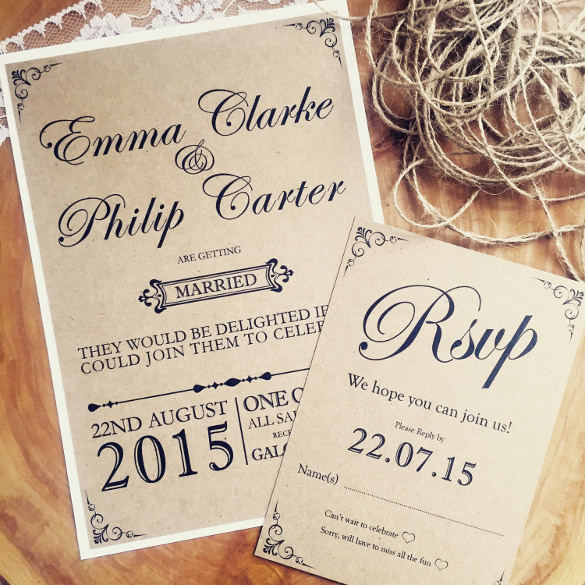 Emma Clarke
&
Philip Carter
ARE GETTING
MARRIED
THEY WOULD BE DELIGHTED IF
COULD JOIN THEM TO CELEB
22ND AUGUST
2015
ONE O
ALL SA
RECE
GALG
Rsvp
We hope you can join us!
Please Reply by
22.07.15
Name(s)
Can't wait to celebrate
Sorry, will have to miss all the fun